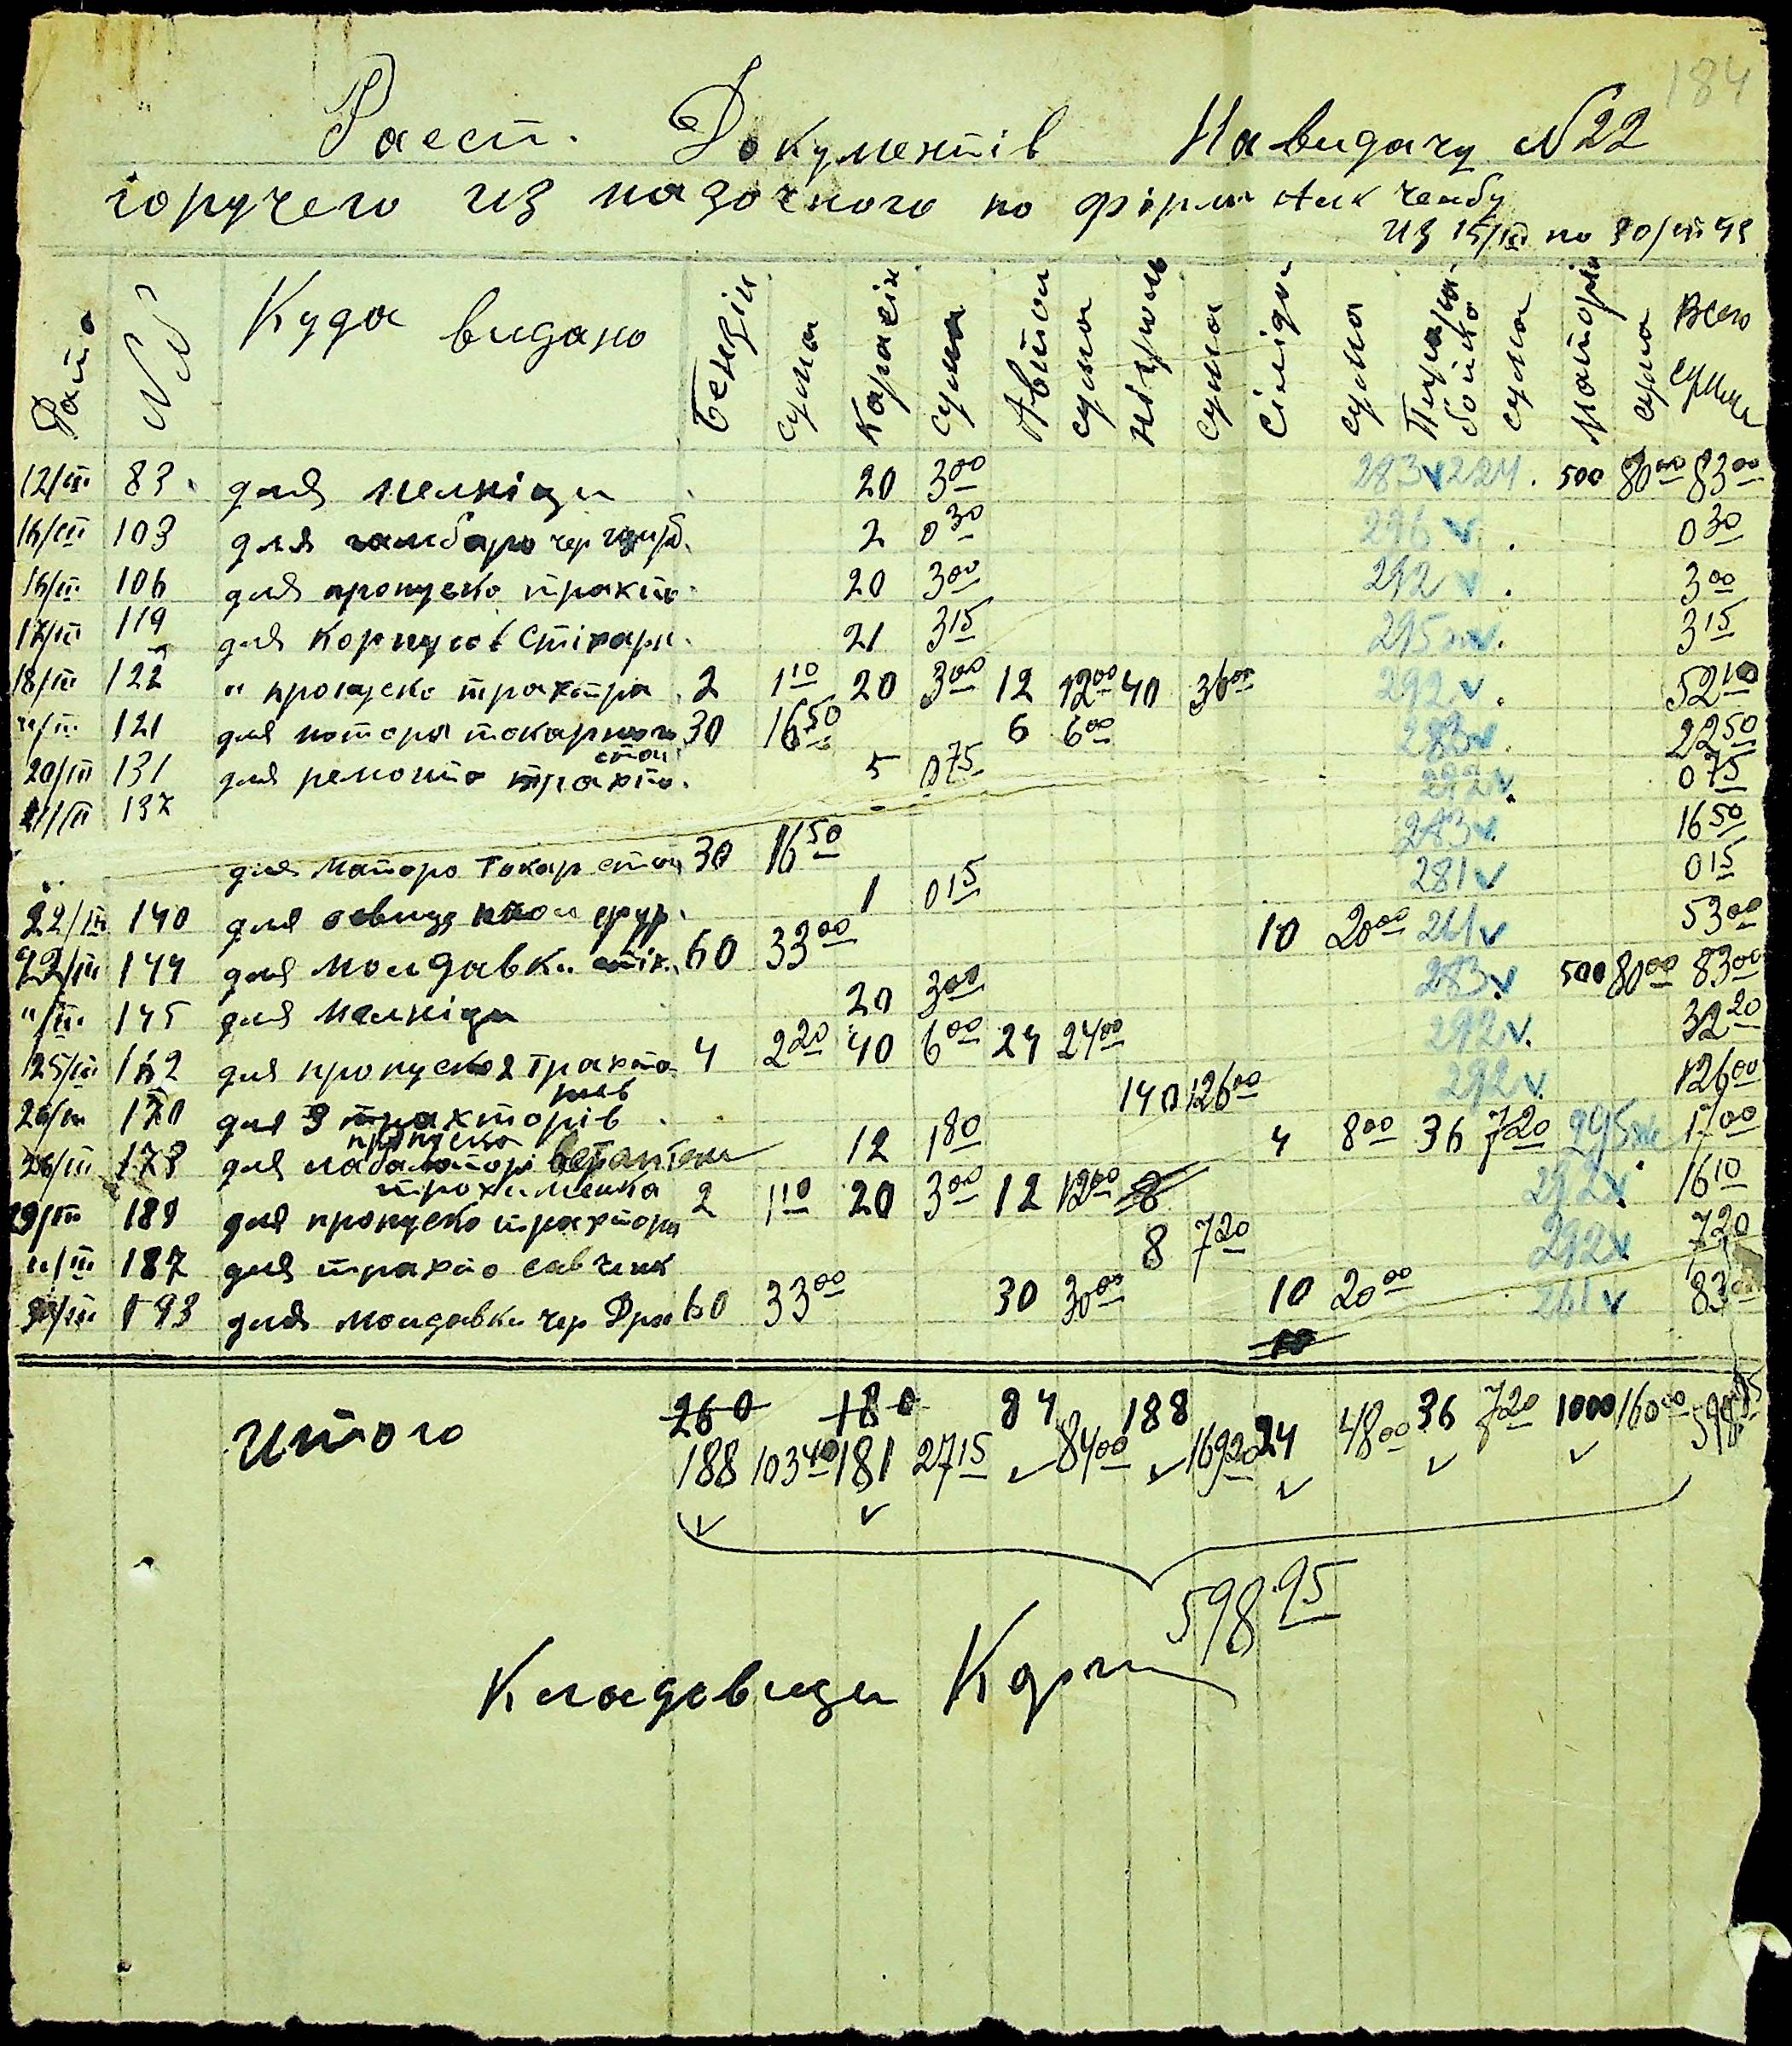 184
Раест. Документів На видачу №22
горучего из назочного по фірм
Из 15/III по 30/III 43
Дата № Куда видано Бензін сума Карасін сума Автол сума Нігроль сума Солідол сума сума сума Всего сумма
12/III 83 для мелніци 20 3 00 283 v 224 500 80 00 83 00
16/III 103 для чер 2 0 30 296 v 0 30
16/III 106 для пропуска тракто 20 3 00 292 v 3 00
17/III 119 для 21 3 15 295 v 3 15
18/III 122 " пропуска трактра 2 1 10 20 3 00 12 12 00 40 36 00 292 v 52 10
"/III 121 для мотора токарного стан 30 16 50 6 6 00 283 v 22 50
20/III 131 для ремонта тракто 5 0 75 292 v 0 75
21/III 137 283 v 16 50
для матора Токар стан 30 16 50
22/III 140 для 1 0 15 281 v 0 15
22/III 144 для молдавки 60 33 00 10 20 00 261 v 53 00
"/III 145 для мелніци 20 3 00 283 v 500 80 00 83 00
25/III 162 для пропуска 2 Тракто 4 2 20 40 6 00 24 24 00 292 v 32 20
26/III 170 для 3 тракторів 140 126 00 292 v 126 00
пропуска
26/III 178 для 12 1 80 4 8 00 36 7 20 295 17 00
29/III 189 для пропуска трактора 2 1 10 20 3 00 12 12 00 8 292 v 16 10
"/III 187 для тракто савченк 8 7 20 292 v 7 20
30/III 193 для молдавки чер 60 33 00 30 30 00 10 20 00 261 v 83 00
10
Итого 260 180 84 188 24 48 00 36 7 20 1000 160 00 598 95
188 103 40 181 27 15 v 84 00 v 169 20 v v v
v v
598 95
Кладовщи